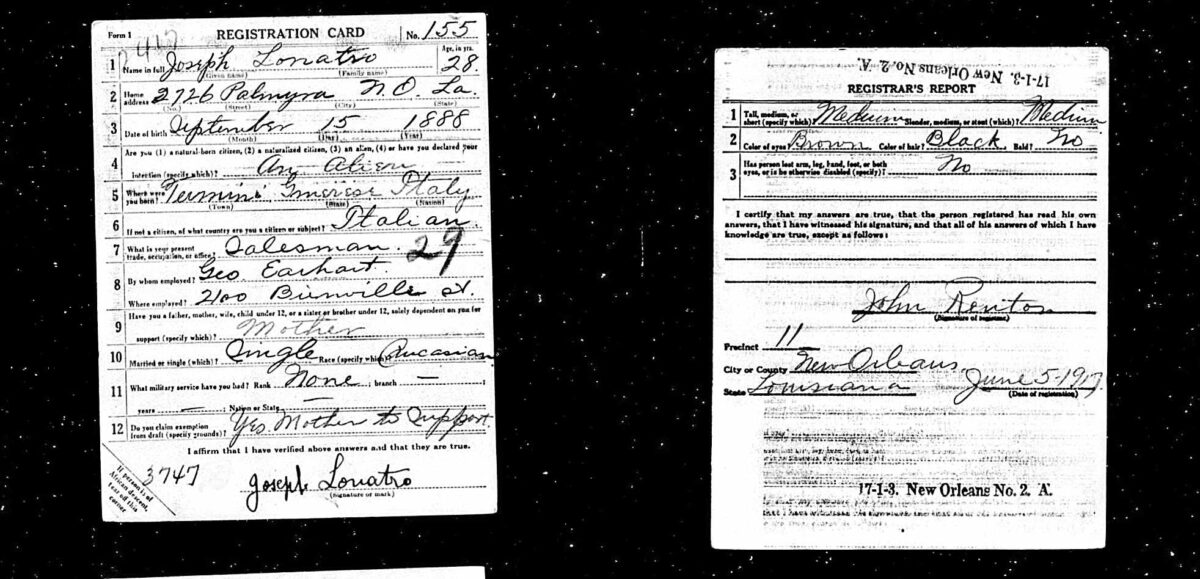 Form 1 REGISTRATION CARD No. 155
1 Name in full Joseph Lonatro Age, in yrs. 28
(Given name) (Family name)
2 Home address 2726 Palmyra N.O. La.
(Street) (City) (State)
3 Date of birth September 15 1888
(Month) (Day) (Year)
4 Are you (1) a natural-born citizen, (2) a naturalized citizen, (3) an alien, (4) or have you declared your
intention (specify which)? An Alien
5 Where were you born? Termini Imerese Italy
(Town) (State) (Nation)
6 If not a citizen, of what country are you a citizen or subject? Italian
7 What is your present trade, occupation, or office? Salesman. 29
8 By whom employed? Geo Earhart.
Where employed? 2100 Bienville St.
9 Have you a father, mother, wife, child under 12, or a sister or brother under 12, solely dependent on you for
support (specify which)? Mother
10 Married or single (which)? Single Race (specify which)? Caucasian
11 What military service have you had? Rank None ; branch — ;
years — ; Nation or State —
12 Do you claim exemption from draft (specify grounds)? Yes. Mother to Support.
I affirm that I have verified above answers and that they are true.
3747 Joseph Lonatro
(Signature or mark)
If person is of African descent, tear off this corner
17-1-3. New Orleans No. 2. A.
REGISTRAR'S REPORT
1 Tall, medium, or short (specify which)? Medium Slender, medium, or stout (which)? Medium
2 Color of eyes? Brown Color of hair? Black Bald? No
3 Has person lost arm, leg, hand, foot, or both eyes, or is he otherwise disabled (specify)? No
I certify that my answers are true, that the person registered has read his own
answers, that I have witnessed his signature, and that all of his answers of which I have
knowledge are true, except as follows:
John Renton
(Signature of registrar)
Precinct 11
City or County New Orleans
State Louisiana June 5-1917
(Date of registration)
17-1-3. New Orleans No. 2. A.